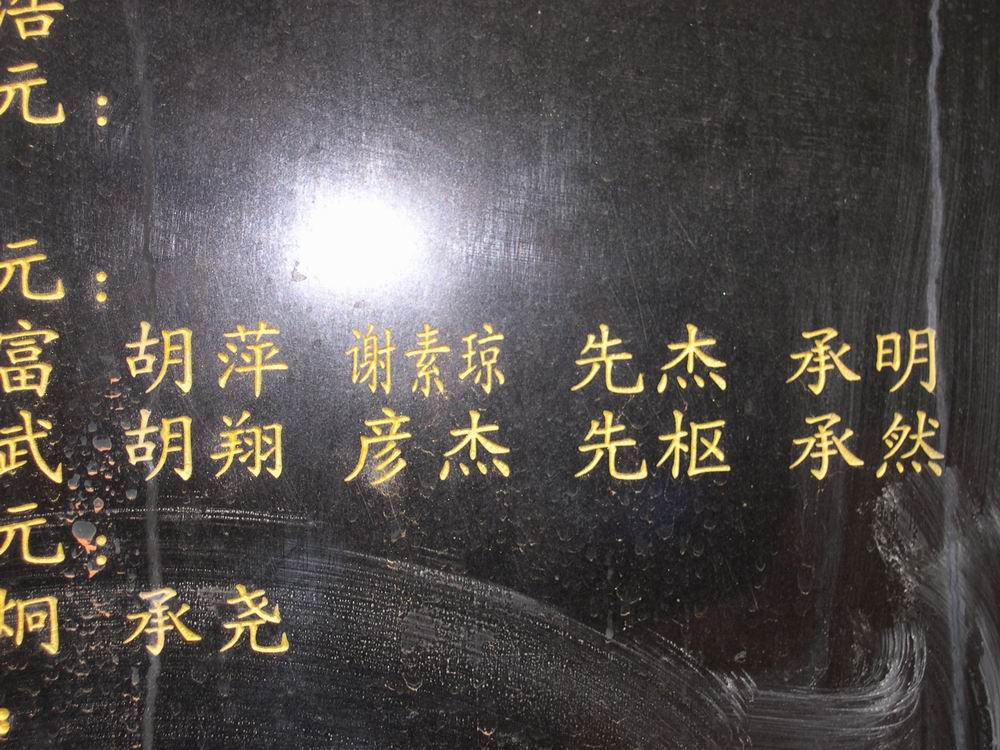 浩
元：
元：
富 胡萍 谢素琼 先杰 承明
武 胡翔 彦杰 先枢 承然
元：
炯 承尧
：